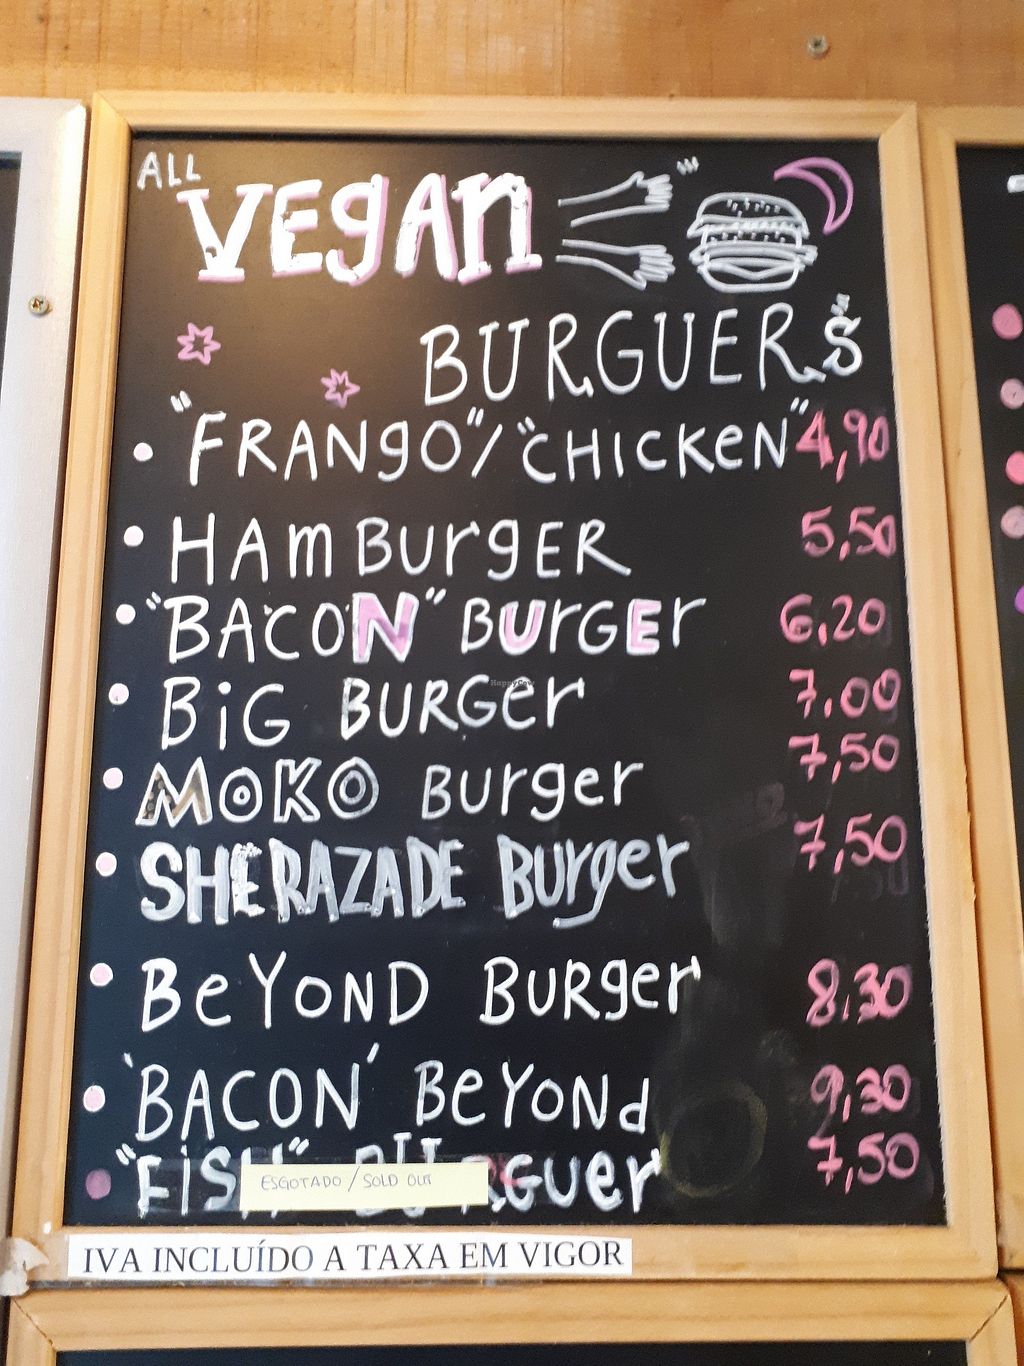 ALL
VEgAn
BURGUER"S
"FRANgO"/"CHICKeN" 4,90
HAmBUrgER 5,50
"BACON" BUrGEr 6.20
BiG BURGer 7.00
MOKO Burger 7,50
SHERAZADE Burger 7,50
BeYOND BURger 8.30
'BACON' BeYONd 9,30
"FiSH" BURGuer 7,50
ESGOTADO / SOLD OUT
IVA INCLUÍDO A TAXA EM VIGOR
HappyCow